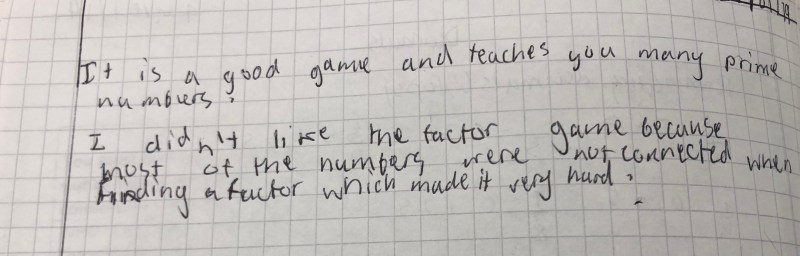 It is a good game and teaches you many prime
numbers.
I didn't like the factor game because
most of the numbers were not connected when
finding a factor which made it very hard.